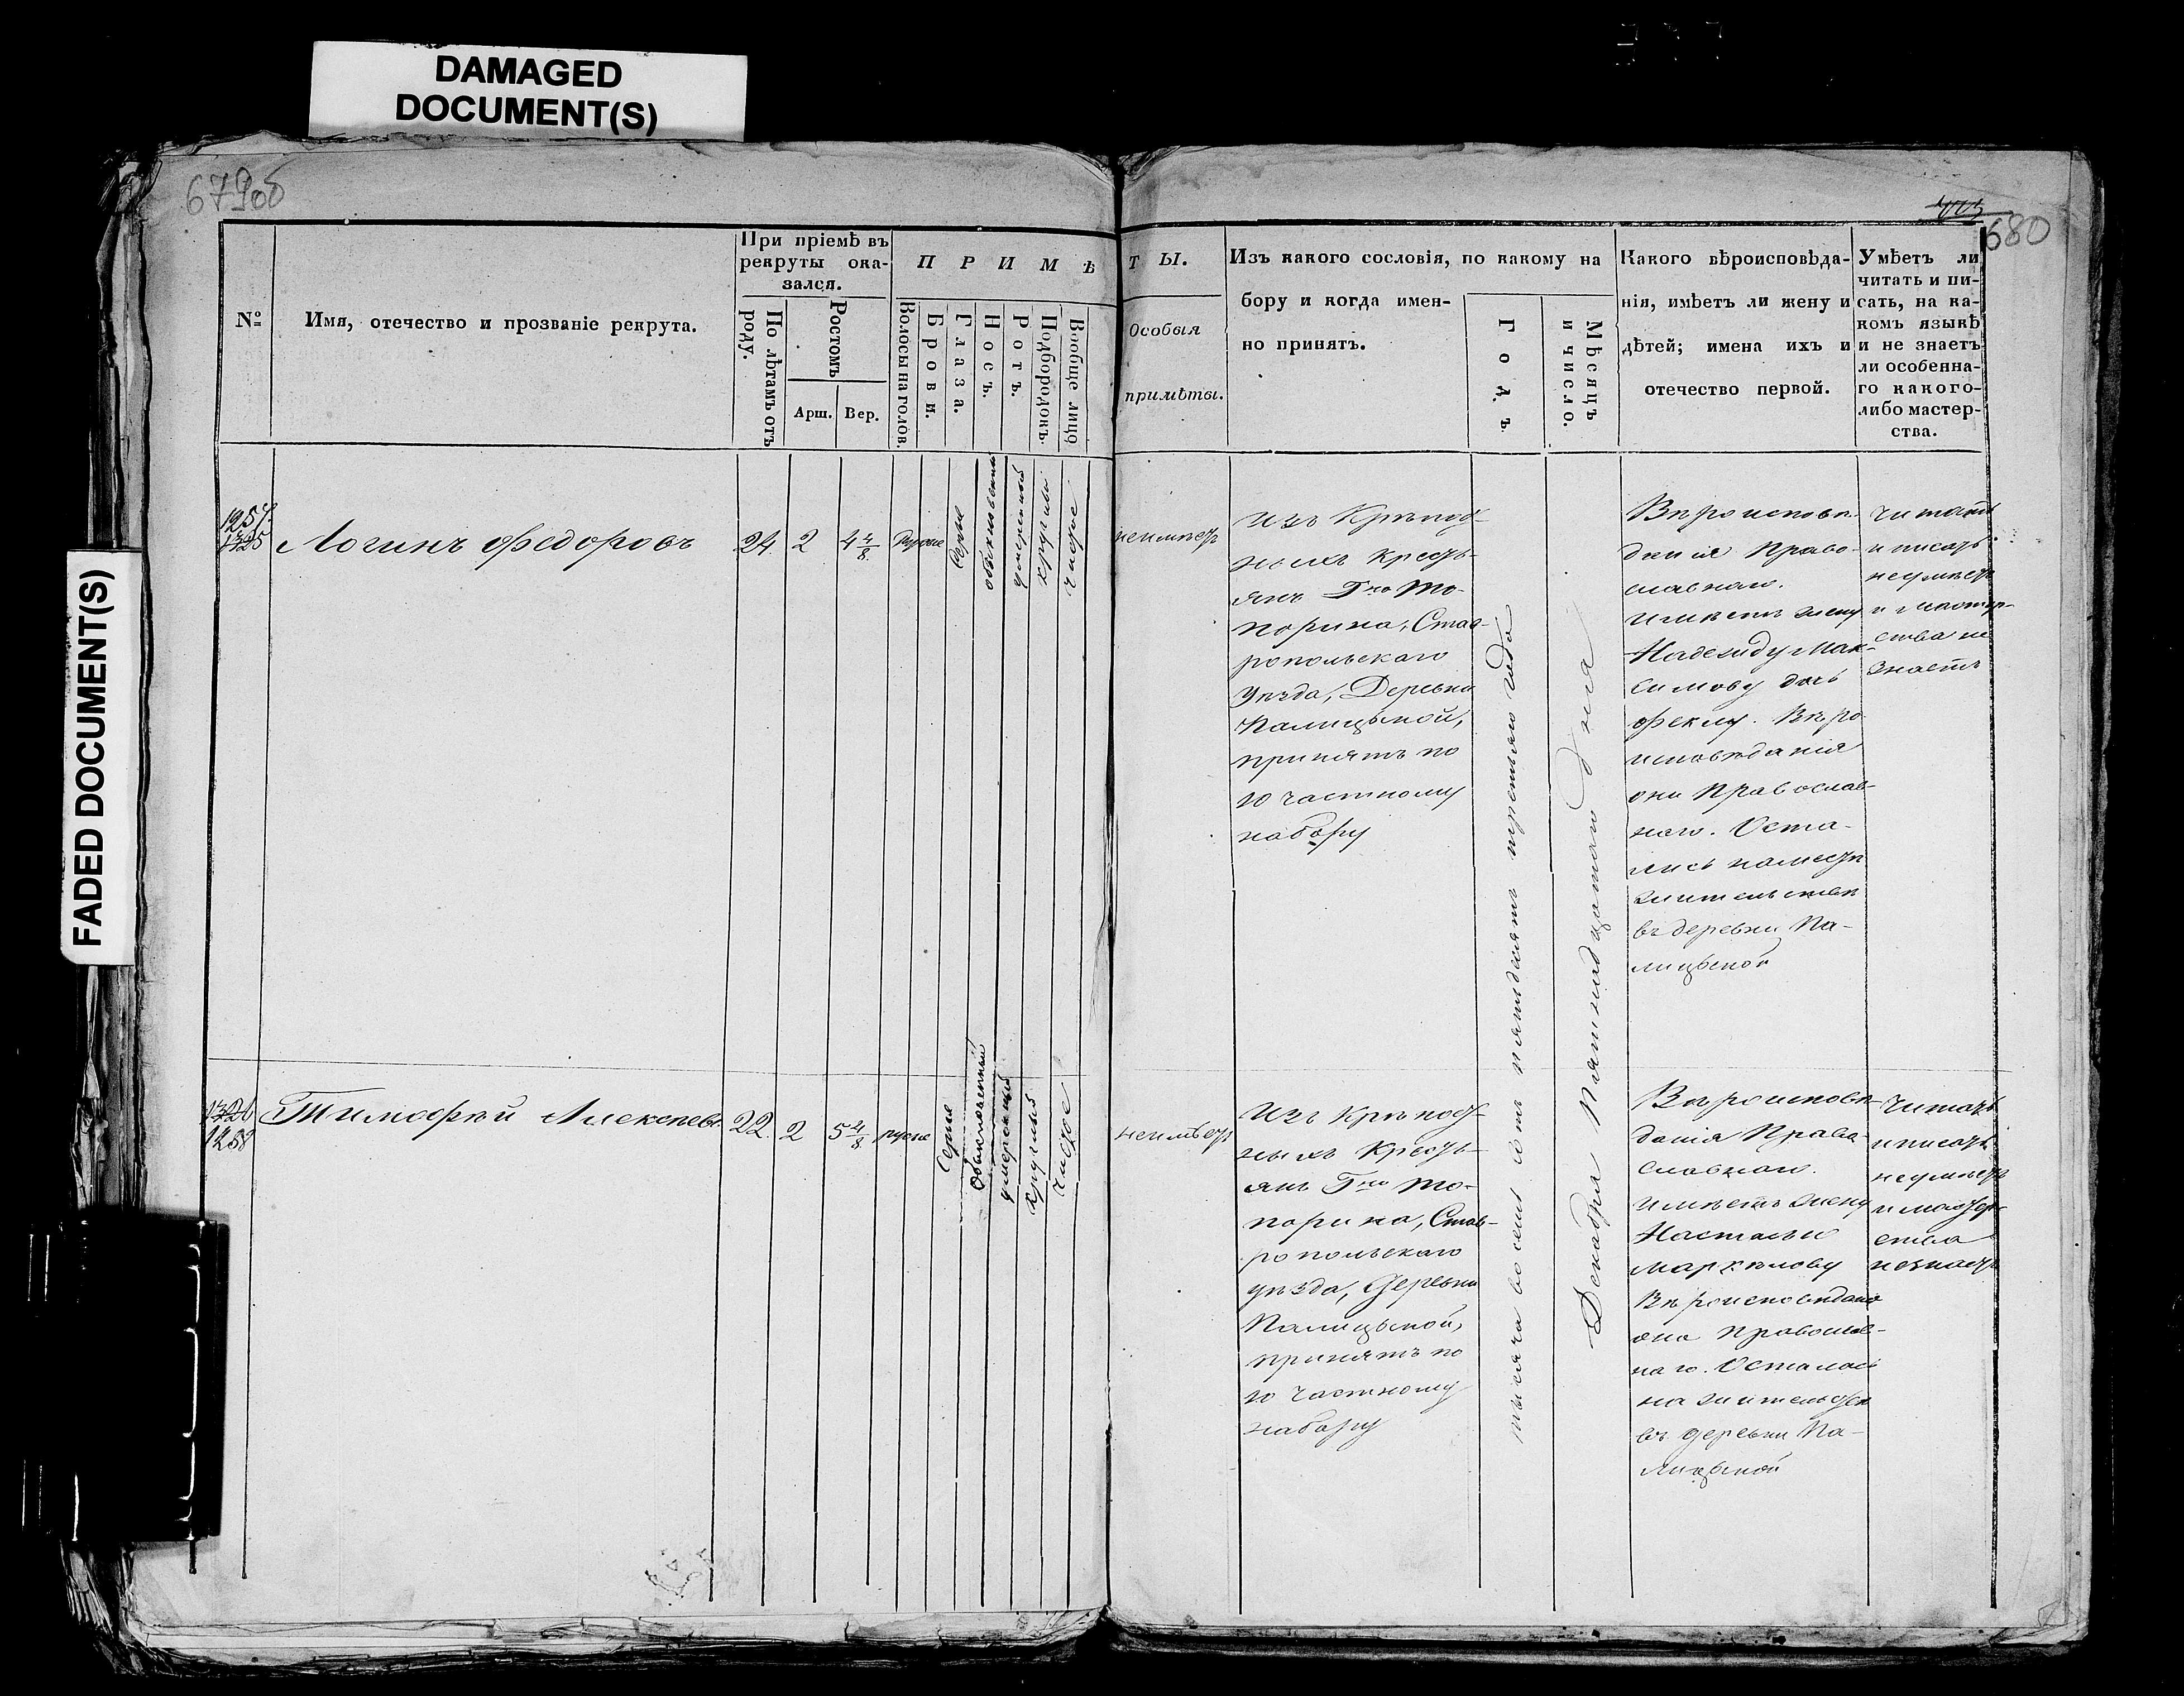 DAMAGED
DOCUMENT(S)
FADED DOCUMENT(S)
679об
680
№
Имя, отечество и прозваніе рекрута.
При пріемѣ въ
рекруты ока-
зался.
По лѣтамъ отъ
роду.
Ростомъ
Арш.
Вер.
П Р И М Ѣ
Волосы на голов.
Брови.
Глаза.
Носъ.
Ротъ.
Подбородокъ.
Вообще лицо
Т Ы.
Особыя
примѣты.
Изъ какого сословія, по какому на
бору и когда имен-
но принятъ.
Годъ.
Мѣсяцъ
и число.
Какого вѣроисповѣда-
нія, имѣетъ ли жену и
дѣтей; имена ихъ и
отечество первой.
Умѣетъ ли
читать и пи-
сать, на ка-
комъ языкѣ
и не знаетъ
ли особенна-
го какого-
либо мастер-
ства.
1257
1325
Логинъ Федоровъ
24
2
4 4/8
русые
серые
обыкновенный
умеренный
круглый
чистое
неимѣетъ
Изъ Крѣпост-
ныхъ Кресть-
янъ Гна То-
порина, Став-
ропольскаго
Уѣзда, Деревни
Палицыной,
принятъ по
10 частному
набору
тысяча восемь сотъ пятьдесятъ третьяго года
Декабря Пятнадцатаго дня
Вѣроисповѣ-
данія Право-
славнаго.
Имѣетъ жену
Надежду Мак-
симову дочь
Феклу. Вѣро
исповѣданія
они Православ-
наго. Оста-
лись наместѣ
жительства
въ деревни Па-
лицыной
Читать
и писать
неумѣетъ
и мастер-
ства не
знаетъ
1326
1258
Тимофѣй Алексѣевъ
22
2
5 4/8
русые
серые
Обыкновенный
умеренный
круглый
чистое
неимѣетъ
Изъ Крѣпост-
ныхъ Кресть-
янъ Гна То-
порина, Став-
ропольскаго
уѣзда, Деревни
Палицыной,
принятъ по
10 частному
набору
Вѣроисповѣ-
данія Право-
славнаго.
Имѣетъ жену
Настасью
Вѣроисповѣданія
она Православ-
наго. Осталась
на жительствѣ
въ деревни Па-
лицыной
Читать
и писать
неумѣетъ
и мастер-
ства
незнаетъ